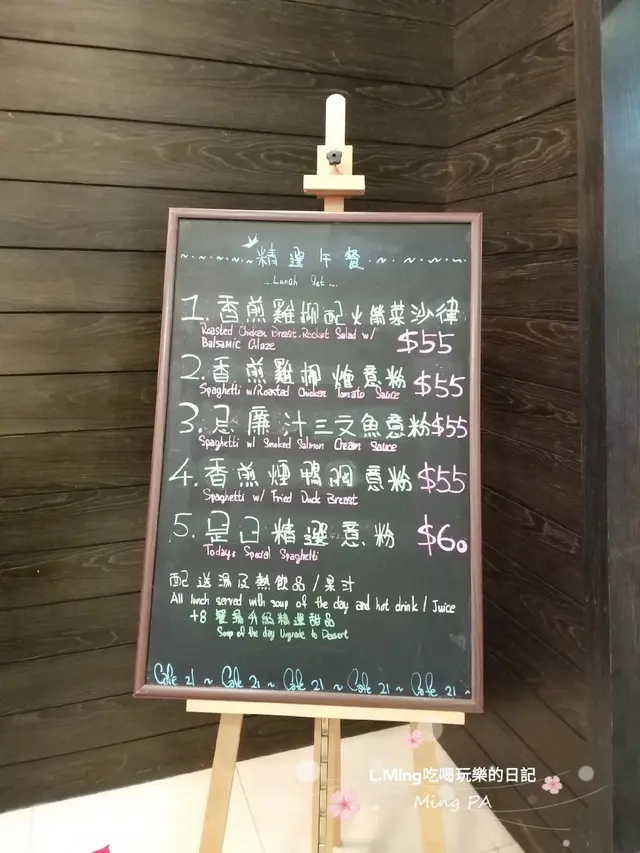 精選午餐
...Lunch Set...
1. 香煎雞柳配火箭菜沙律
Roasted Chicken Breast. Rocket Salad w/
Balsamic Glaze $55
2. 香煎雞柳燴意粉 $55
Spaghetti w/Roasted Chicken Tomato Sauce
3. 忌廉汁三文魚意粉 $55
Spaghetti w/ Smoked Salmon Cream Sauce
4. 香煎煙鴨胸意粉 $55
Spaghetti w/ Fried Duck Breast
5. 是日精選意粉 $60
Todays Special Spaghetti
配送湯及熱飲品/果汁
All lunch served with soup of the day and hot drink / Juice
+8 餐湯升級精選甜品
Soup of the day Upgrade to Dessert
Cafe 21 ~ Cafe 21 ~ Cafe 21 ~ Cafe 21 ~ Cafe 21 ~
L.Ming吃喝玩樂的日記
Ming PA